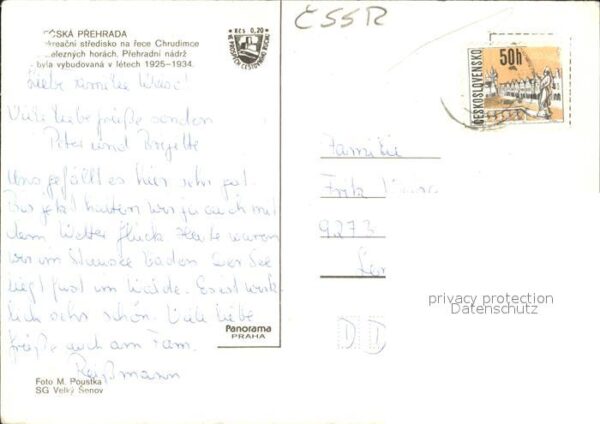 ČSSR
SKÁ PŘEHRADA
reační středisko na řece Chrudimce
elezných horách. Přehradní nádrž
byla vybudovaná v létech 1925-1934.
Kčs 0,20
50h
ČESKOSLOVENSKO
Liebe Familie
Viele liebe Grüße senden
Peter und Brigitte
Uns gefällt es hier sehr gut.
Bis jetzt hatten wir ja auch mit
dem Wetter Glück. Heute waren
wir im Stausee baden. Der See
liegt fast im Walde. Es ist wirk-
lich sehr schön. Viele liebe
Grüße auch an Fam.
Reißmann
Familie
Fritz
9273
D D
privacy protection
Datenschutz
Panorama
PRAHA
Foto M. Poustka
SG Velký Šenov